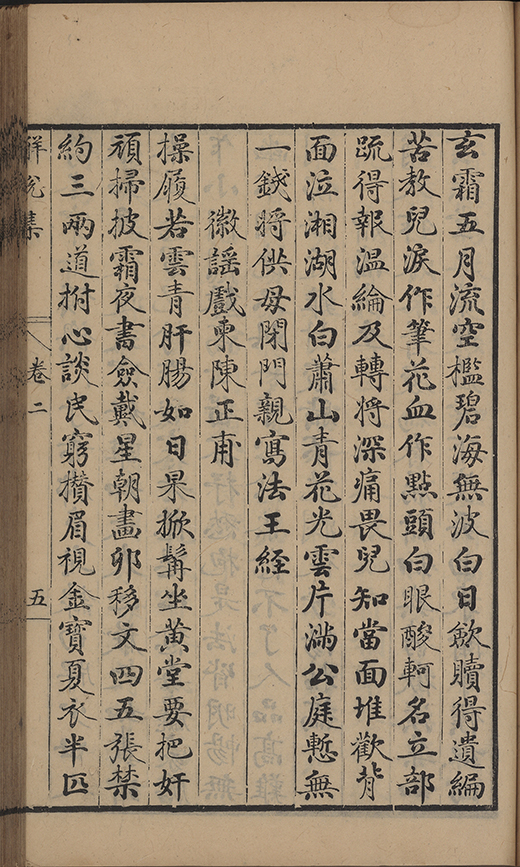 玄霜五月流空檻碧海無波白日歛贖得遺編
苦教兒淚作筆花血作點頭白眼酸軻名立部
䟽得報温綸及轉將深痛畏兒知當面堆歡背
面泣湘湖水白蕭山青花光雲片滿公庭慙無
一錢將供母閉門親寫法王經
徽謡戲柬陳正甫
操履若雲青肝腸如日杲掀髯坐黄堂要把奸
頑掃披霜夜書僉戴星朝畫卯移文四五張禁
約三兩道拊心談民窮攅眉視金寶夏衣半匹
解脱集
卷二
五